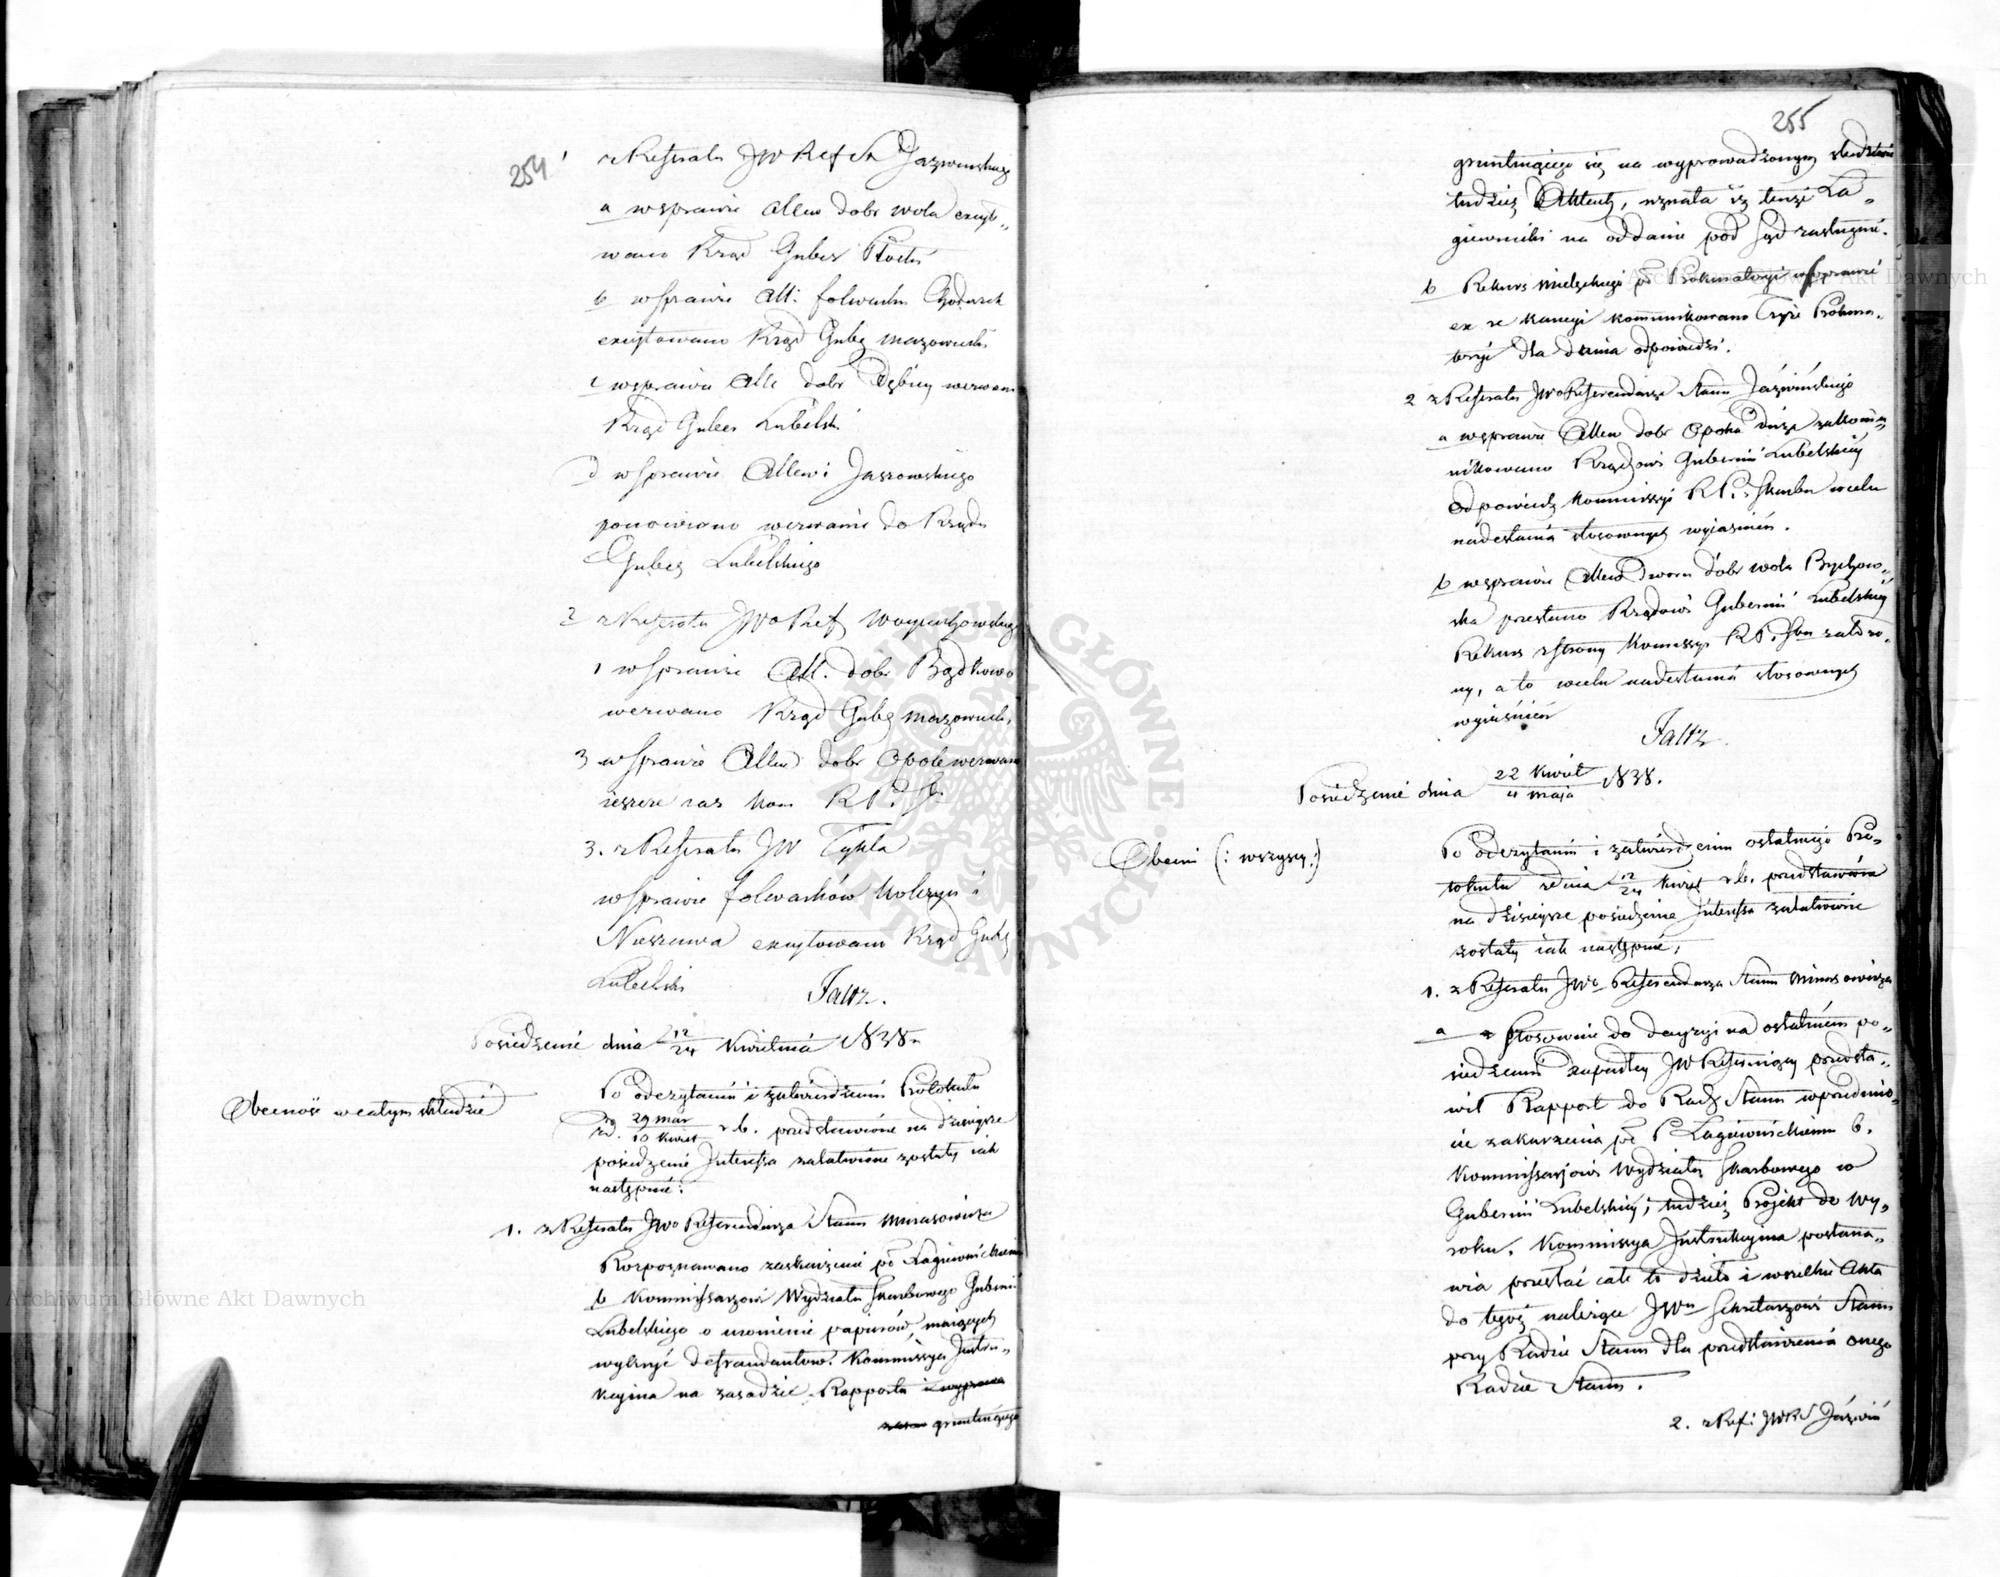 254
z Referatu JW Ref St Jaźwińskiego
a w sprawie Allew dobr Wola excyto-
wano Rząd Guber Płocki
b w Sprawie All: folwarku
excytowano Rząd Guber Mazowiecki
c w sprawie Alle dobr Dębicy wezwano
Rząd Guber Lubelski
d w Sprawie Allewi Jaszowskiego
ponowiono wezwanie do Rządu
Guber Lubelskiego
2 z Referatu JWo Ref Woyciechowskiego
1 w Sprawie All. dobr Bądkowo
wezwano Rząd Gube Mazowiecki
3 w Sprawie Allew dobr Opole wezwano
ieszcze raz Kom R P. i S.
3. z Referatu JW Tykla
w Sprawie folwarków Kolczyn i
Nieszawa excytowano Rząd Gube
Lubelski
Faltz.
Posiedzenie dnia 12/24 Kwietnia 1838.
Obecność w całym składzie
Po odczytaniu i zatwierdzeniu Protokułu
z d. 29 Mar/10 Kwiet r. b. przedstawione na dzisieysze
posiedzenie Interessa załatwione zostały iak
następuie:
1. z Referatu JWo Referendarza Stanu Minasowicza
Rozpoznawano zaskarżenie po Łagiewnickiemu
b Kommissarzowi Wydziału Skarbowego Gubernii
Lubelskiego o uronienie papierów mających
wykryć defraudantów. Kommissya Instru-
kcyina na zasadzie Rapportu
gruntuiącego
255
gruntuiącego się na wyprowadzonym śledztwie
tudzież Aktach, uznała iż tenże Ła-
giewnicki na oddanie pod Sąd zasługuie.
b Rekurs Mielęckiego po Prokuratoryi w sprawie
ex re kaucyi kommunikowano Teyże Prokura-
toryi dla dania odpowiedzi.
2 z Referatu JWo Referendarza Stanu Jaźwińskiego
a w sprawie Allew dobr Opoka duża zakomu-
nikowano Rządowi Gubernii Lubelskiey
odpowiedź Kommissyi R P. i Skarbu w celu
nadesłania stosownych wyjaśnień.
b w sprawie Allew Dworu dóbr Wola Bychow-
ska przesłano Rządowi Gubernii Lubelskiey
Rekurs z Strony Kommissyi R P. i Sbu założo-
ny, a to w celu nadesłania stosownych
wyjaśnień
Faltz.
Posiedzenie dnia 22 Kwiet/4 Maja 1838.
Obecni (: wszyscy :)
Po odczytaniu i zatwierdzeniu ostatniego Pro-
tokułu z dnia 12/24 Kwiet r. b. przedstawione
na dzisieysze posiedzenie Interessa załatwione
zostały iak następuie,
1. z Referatu JWo Referendarza Stanu Minasowicza
a Stosownie do decyzyi na ostatniem po-
siedzeniu zapadłey JW Referuiący przedsta-
wił Rapport do Rady Stanu w przedmio-
cie zaskarżenia po P Łagiewnickiemu b.
Kommissarzowi Wydziału Skarbowego w
Gubernii Lubelskiey; tudzież Projekt do Wy-
roku. Kommissya Instrukcyina postana-
wia przesłać całe to dzieło i wszelkie Akta
do tegoż należące JWu Sekretarzowi Stanu
przy Radzie Stanu dla przedstawienia onego
Radzie Stanu.
2. z Ref: JWRS Jaźwiń
Archiwum Główne Akt Dawnych
Archiwum Główne Akt Dawnych
ARCHIWUM GŁÓWNE AKT DAWNYCH